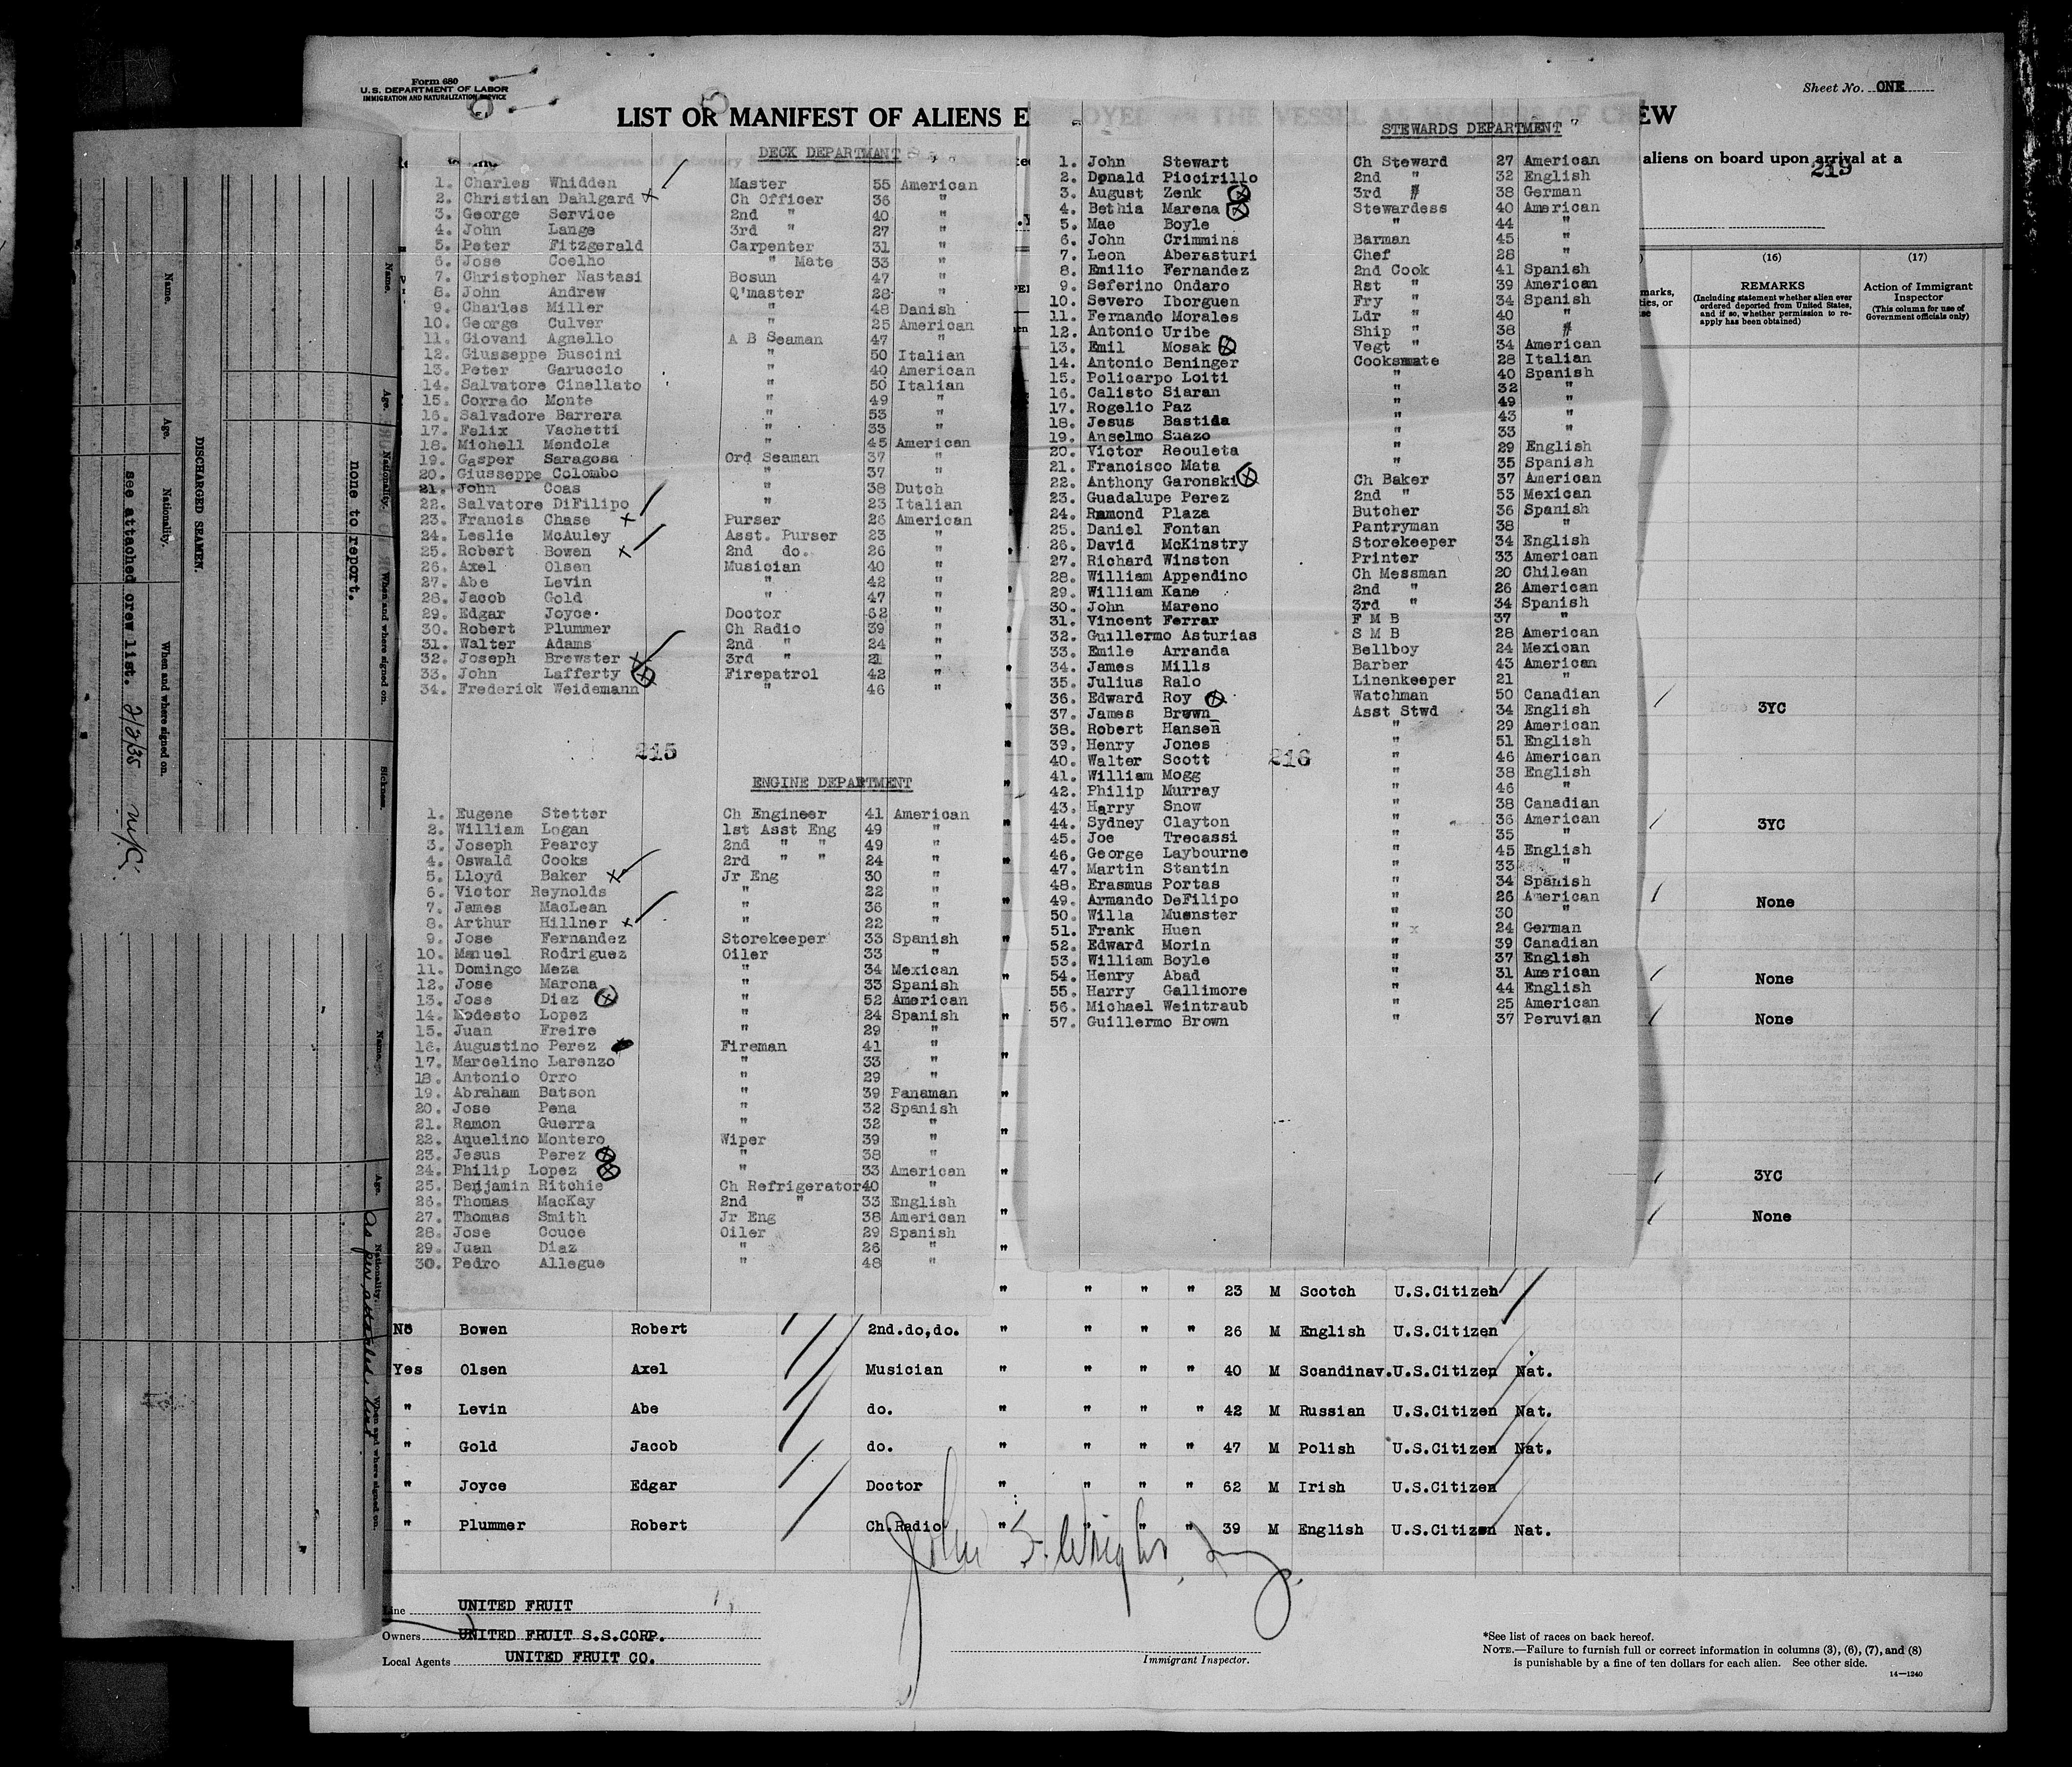 Form 680
U.S. DEPARTMENT OF LABOR
IMMIGRATION AND NATURALIZATION SERVICE
Sheet No. ONE
LIST OR MANIFEST OF ALIENS EMPLOYED ON THE VESSEL AS MEMBERS OF CREW
aliens on board upon arrival at a
219
DECK DEPARTMANT
1. Charles Whidden Master 55 American
2. Christian Dahlgard Ch Officer 36 "
3. George Service 2nd " 40 "
4. John Lange 3rd " 27 "
5. Peter Fitzgerald Carpenter 31 "
6. Jose Coelho " Mate 33 "
7. Christopher Nastasi Bosun 47 "
8. John Andrew Q'master 28 "
9. Charles Miller " 48 Danish
10. George Culver " 25 American
11. Giovani Agnello A B Seaman 47 "
12. Giusseppe Buscini " 50 Italian
13. Peter Garuccio " 40 American
14. Salvatore Cinellato " 50 Italian
15. Corrado Monte " 49 "
16. Salvadore Barrera " 53 "
17. Felix Vachetti " 33 "
18. Michell Mendola " 45 American
19. Gasper Saragosa Ord Seaman 37 "
20. Giusseppe Colombo " 37 "
21. John Coas " 38 Dutch
22. Salvatore DiFilipo " 23 Italian
23. Francis Chase Purser 26 American
24. Leslie McAuley Asst. Purser 23 "
25. Robert Bowen 2nd do. 26 "
26. Axel Olsen Musician 40 "
27. Abe Levin " 42 "
28. Jacob Gold " 47 "
29. Edgar Joyce Doctor 62 "
30. Robert Plummer Ch Radio 39 "
31. Walter Adams 2nd " 24 "
32. Joseph Brewster 3rd " 21 "
33. John Lafferty Firepatrol 42 "
34. Frederick Weidemann " 46 "
215
ENGINE DEPARTMENT
1. Eugene Stetter Ch Engineer 41 American
2. William Logan 1st Asst Eng 49 "
3. Joseph Pearcy 2nd " " 49 "
4. Oswald Cooks 2rd " " 24 "
5. Lloyd Baker Jr Eng 30 "
6. Victor Reynolds " 22 "
7. James MacLean " 36 "
8. Arthur Hillner " 22 "
9. Jose Fernandez Storekeeper 33 Spanish
10. Manuel Rodriguez Oiler 33 "
11. Domingo Meza " 34 Mexican
12. Jose Marona " 33 Spanish
13. Jose Diaz " 52 American
14. Modesto Lopez " 24 Spanish
15. Juan Freire " 29 "
16. Augustino Perez Fireman 41 "
17. Marcelino Larenzo " 33 "
18. Antonio Orro " 29 "
19. Abraham Batson " 39 Panaman
20. Jose Pena " 32 Spanish
21. Ramon Guerra " 32 "
22. Aquelino Montero Wiper 39 "
23. Jesus Perez " 38 "
24. Philip Lopez " 33 American
25. Benjamin Ritchie Ch Refrigerator 40 "
26. Thomas MacKay 2nd " 33 English
27. Thomas Smith Jr Eng 38 American
28. Jose Couce Oiler 29 Spanish
29. Juan Diaz " 26 "
30. Pedro Allegue " 48 "
STEWARDS DEPARTMENT
1. John Stewart Ch Steward 27 American
2. Donald Piccirillo 2nd " 32 English
3. August Zenk 3rd " 38 German
4. Bethia Marena Stewardess 40 American
5. Mae Boyle " 44 "
6. John Crimmins Barman 45 "
7. Leon Aberasturi Chef 28 "
8. Emilio Fernandez 2nd Cook 41 Spanish
9. Seferino Ondaro Rst " 39 American
10. Severo Iborguen Fry " 34 Spanish
11. Fernando Morales Ldr " 40 "
12. Antonio Uribe Ship " 38 "
13. Emil Mosak Vegt " 34 American
14. Antonio Beninger Cooksmate 28 Italian
15. Policarpo Loiti " 40 Spanish
16. Calisto Siaran " 32 "
17. Rogelio Paz " 49 "
18. Jesus Bastida " 43 "
19. Anselmo Suazo " 33 "
20. Victor Reouleta " 29 English
21. Francisco Mata " 35 Spanish
22. Anthony Garonski Ch Baker 37 American
23. Guadalupe Perez 2nd " 53 Mexican
24. Ramond Plaza Butcher 36 Spanish
25. Daniel Fontan Pantryman 38 "
26. David McKinstry Storekeeper 34 English
27. Richard Winston Printer 33 American
28. William Appendino Ch Messman 20 Chilean
29. William Kane 2nd " 26 American
30. John Mareno 3rd " 34 Spanish
31. Vincent Ferrar F M B 37 "
32. Guillermo Asturias S M B 28 American
33. Emile Arranda Bellboy 24 Mexican
34. James Mills Barber 43 American
35. Julius Ralo Linenkeeper 21 "
36. Edward Roy Watchman 50 Canadian
37. James Brown Asst Stwd 34 English
38. Robert Hansen " 29 American
39. Henry Jones " 51 English
40. Walter Scott " 46 American
41. William Mogg " 38 English
42. Philip Murray " 46 "
43. Harry Snow " 38 Canadian
44. Sydney Clayton " 36 American
45. Joe Trecassi " 35 "
46. George Laybourne " 45 English
47. Martin Stantin " 33 "
48. Erasmus Portas " 34 Spanish
49. Armando DeFilipo " 26 American
50. Willa Muenster " 30 "
51. Frank Huen " 24 German
52. Edward Morin " 39 Canadian
53. William Boyle " 37 English
54. Henry Abad " 31 American
55. Harry Gallimore " 44 English
56. Michael Weintraub " 25 American
57. Guillermo Brown " 37 Peruvian
216
(16) (17)
REMARKS
(Including statement whether alien ever ordered deported from United States, and if so, whether permission to reapply has been obtained)
Action of Immigrant Inspector
(This column for use of Government officials only)
3YC
3YC
None
None
None
3YC
None
" " " " 23 M Scotch U.S.Citizen
No Bowen Robert 2nd.do,do. " " " " 26 M English U.S.Citizen
Yes Olsen Axel Musician " " " " 40 M Scandinav. U.S.Citizen Nat.
" Levin Abe do. " " " " 42 M Russian U.S.Citizen Nat.
" Gold Jacob do. " " " " 47 M Polish U.S.Citizen Nat.
" Joyce Edgar Doctor " " " " 62 M Irish U.S.Citizen
" Plummer Robert Ch.Radio " " " " 39 M English U.S.Citizen Nat.
John S. Wright
Line UNITED FRUIT
Owners UNITED FRUIT S.S.CORP.
Local Agents UNITED FRUIT CO.
Immigrant Inspector.
*See list of races on back hereof.
NOTE.—Failure to furnish full or correct information in columns (3), (6), (7), and (8)
is punishable by a fine of ten dollars for each alien. See other side.
14—1240
Name. Age. Nationality. When and where signed on. Sickness.
none to report.
DISCHARGED SEAMEN.
Name. Age. Nationality. When and where signed on.
see attached crew list. 2/2/35 N.Y.C.
Name. Age. Nationality. When and where signed on.
As per attached list